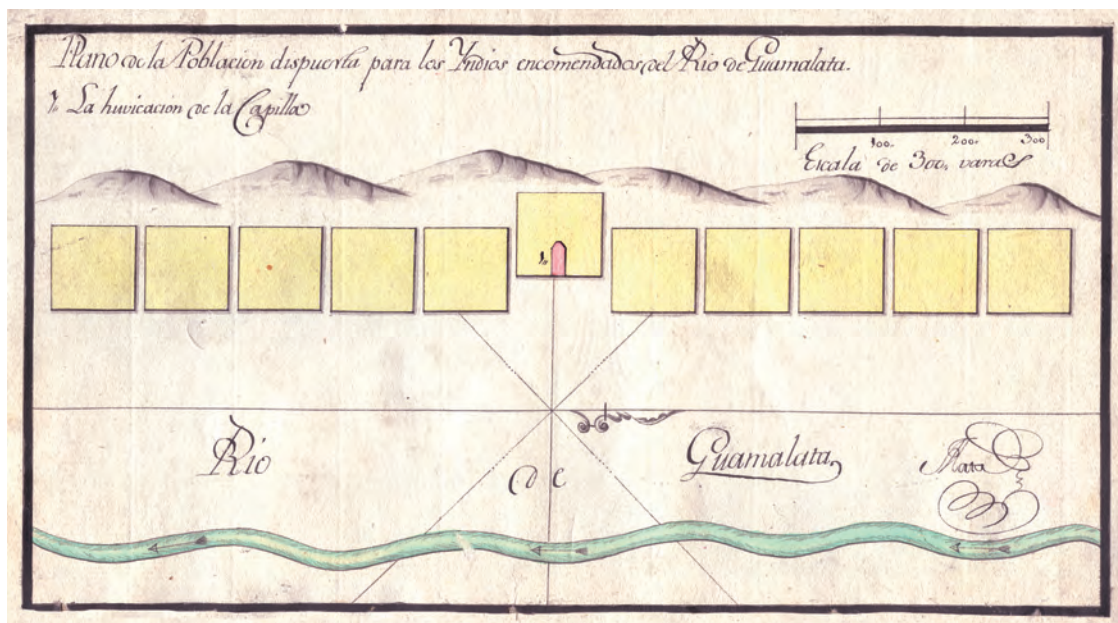 Plano de la Poblacion dispuesta para los Yndios encomendados del Rio de Guamalata.
1. La huvicación de la Capilla
100. 200. 300
Escala de 300. varas
1.
Rio de Guamalata
Mata